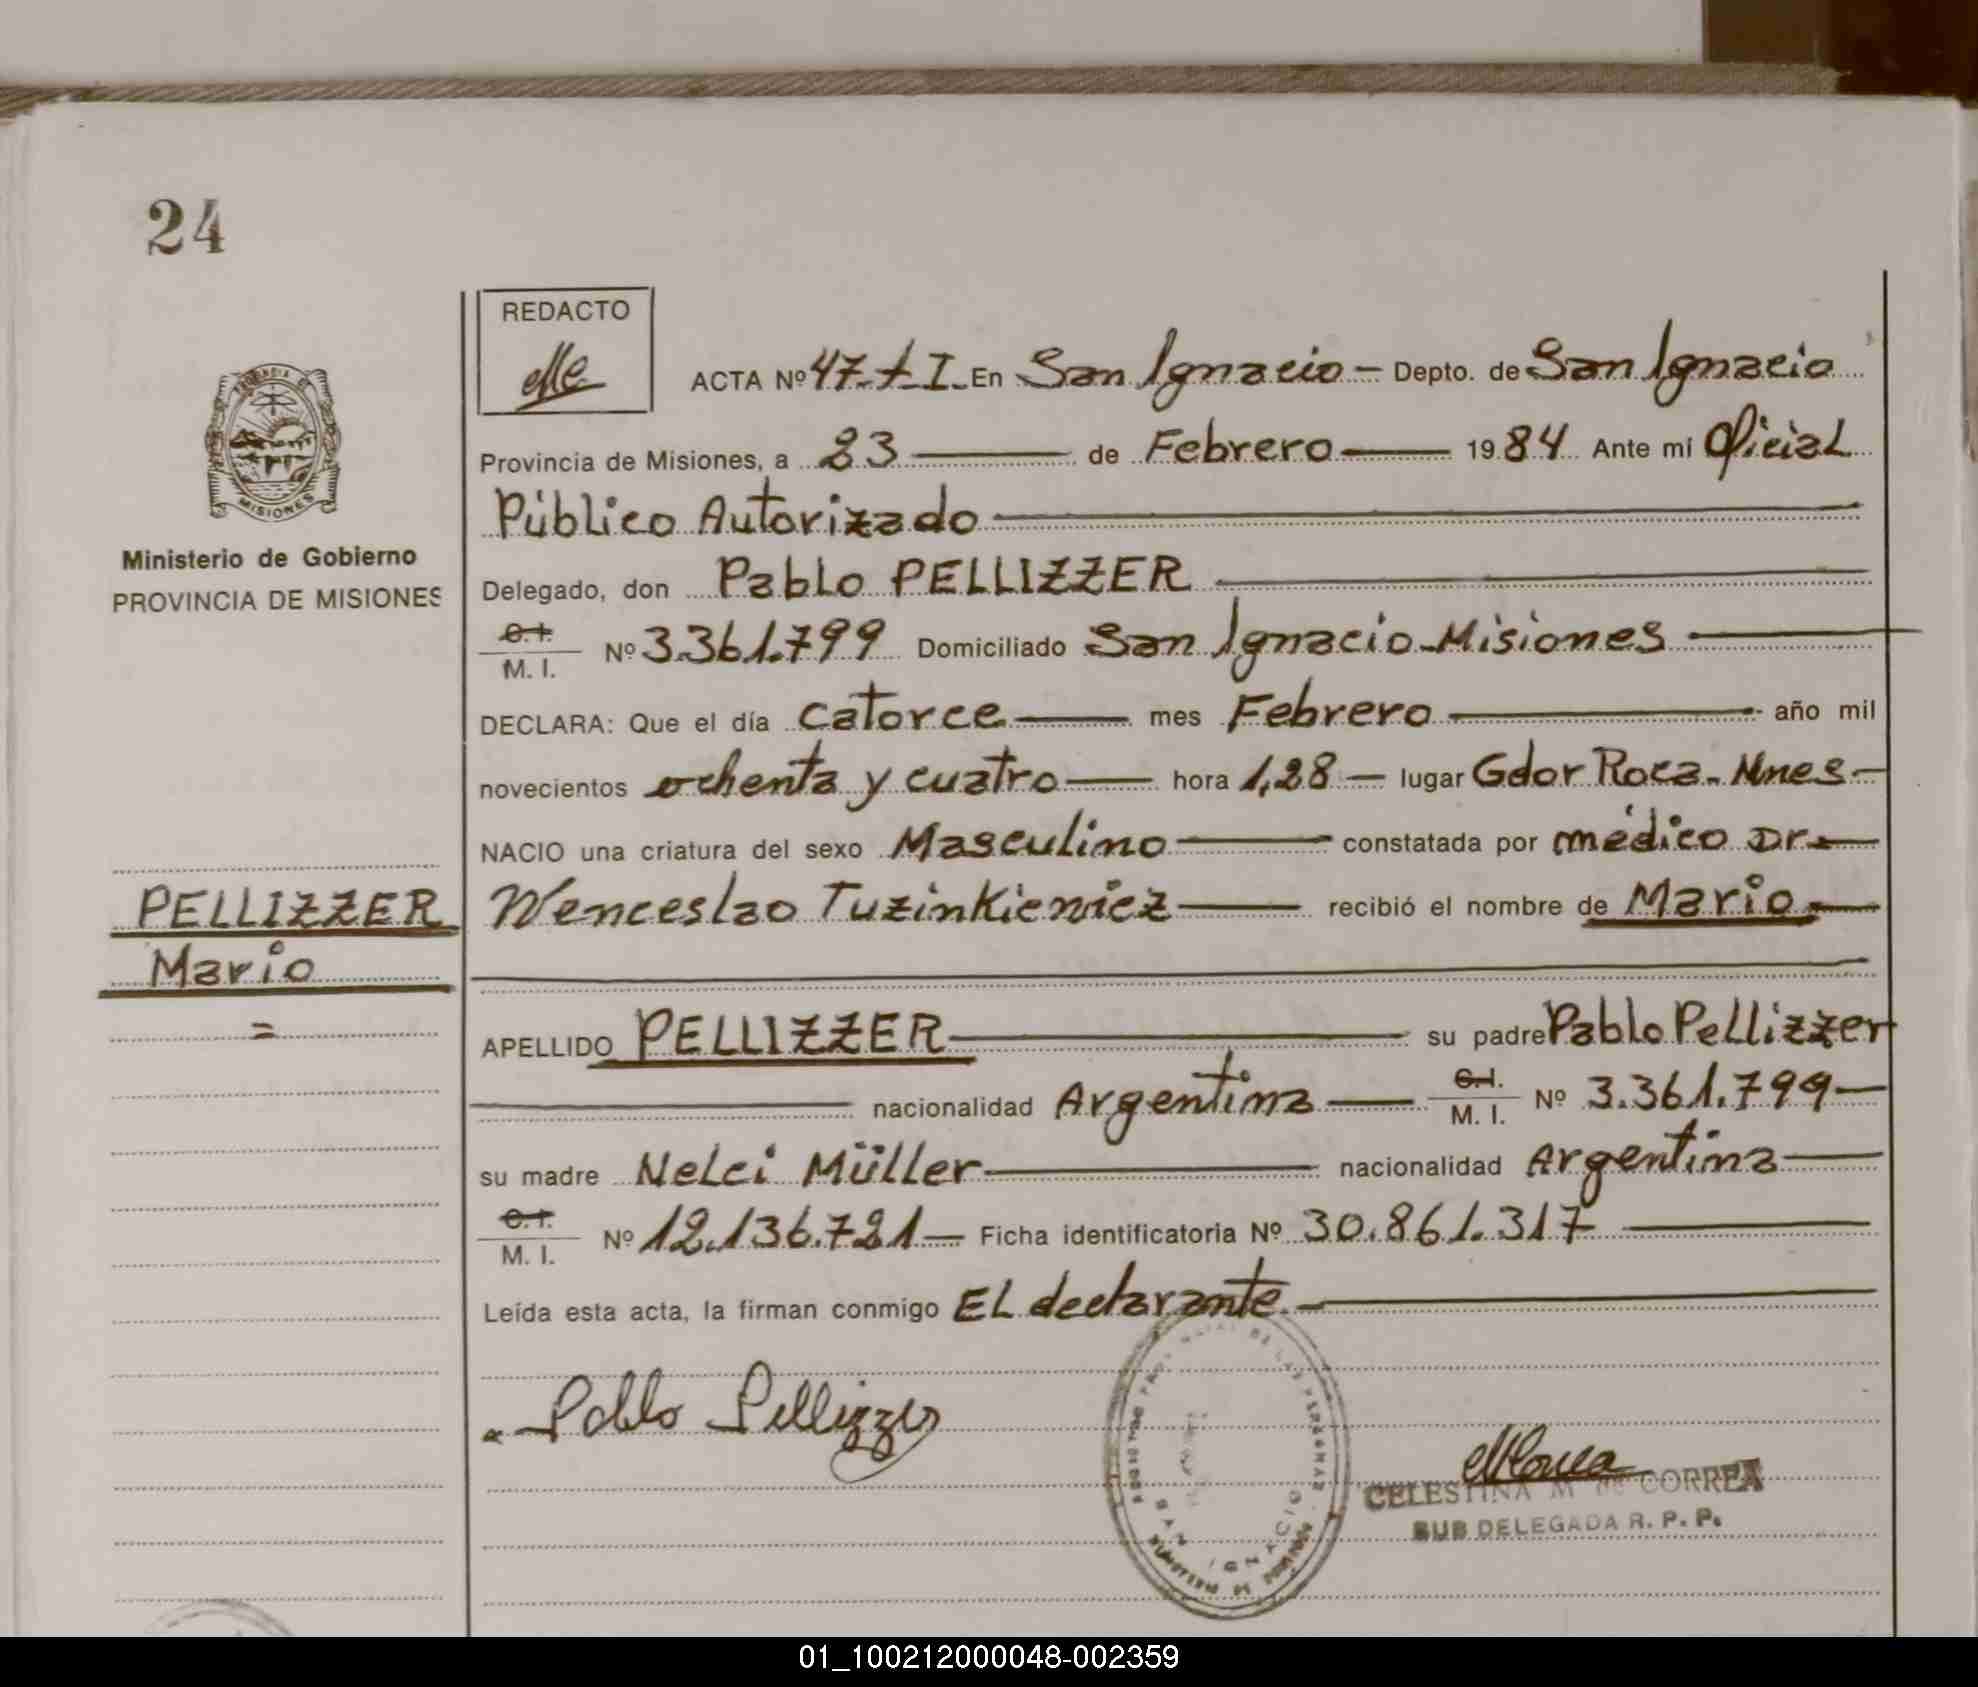 24
REDACTO
ACTA Nº 47-t I- En San Ignacio - Depto. de San Ignacio
Provincia de Misiones, a 23 de Febrero 1984 Ante mi Oficial
Público Autorizado
Delegado, don Pablo PELLIZZER
C.I.
M. I. Nº 3.361.799 Domiciliado San Ignacio-Misiones
DECLARA: Que el día catorce mes Febrero año mil
novecientos ochenta y cuatro hora 1,28 lugar Gdor Roca. Mnes
NACIO una criatura del sexo Masculino constatada por médico Dr.
Wenceslao Tuzinkiewicz recibió el nombre de Mario
APELLIDO PELLIZZER su padre Pablo Pellizzer
nacionalidad Argentina C.I. M. I. Nº 3.361.799
su madre Nelci Müller nacionalidad Argentina
C.I.
M. I. Nº 12.136.721 Ficha identificatoria Nº 30.861.317
Leída esta acta, la firman conmigo El declarante
Pablo Pellizzer
CELESTINA M de CORREA
SUB DELEGADA R. P. P.
SAN IGNACIO
MISIONES
Ministerio de Gobierno
PROVINCIA DE MISIONES
PELLIZZER
Mario
=
01_100212000048-002359